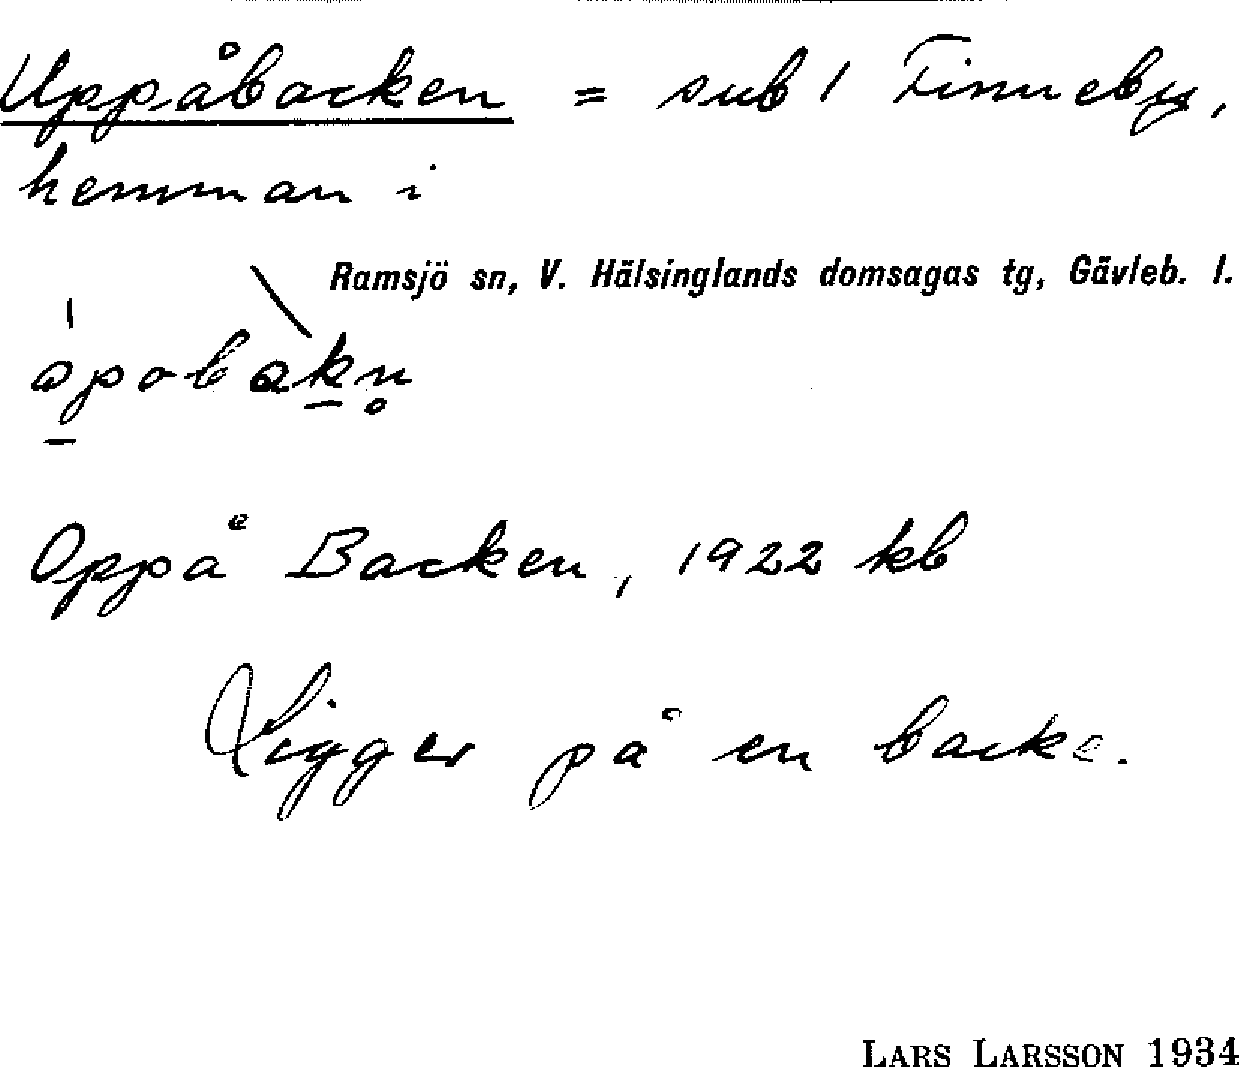 Uppåbacken = sub 1 Finneby,
hemman i
Ramsjö sn, V. Hälsinglands domsagas tg, Gävleb. l.
Oppå Backen, 1922 kb
Ligger på en backe.
LARS LARSSON 1934